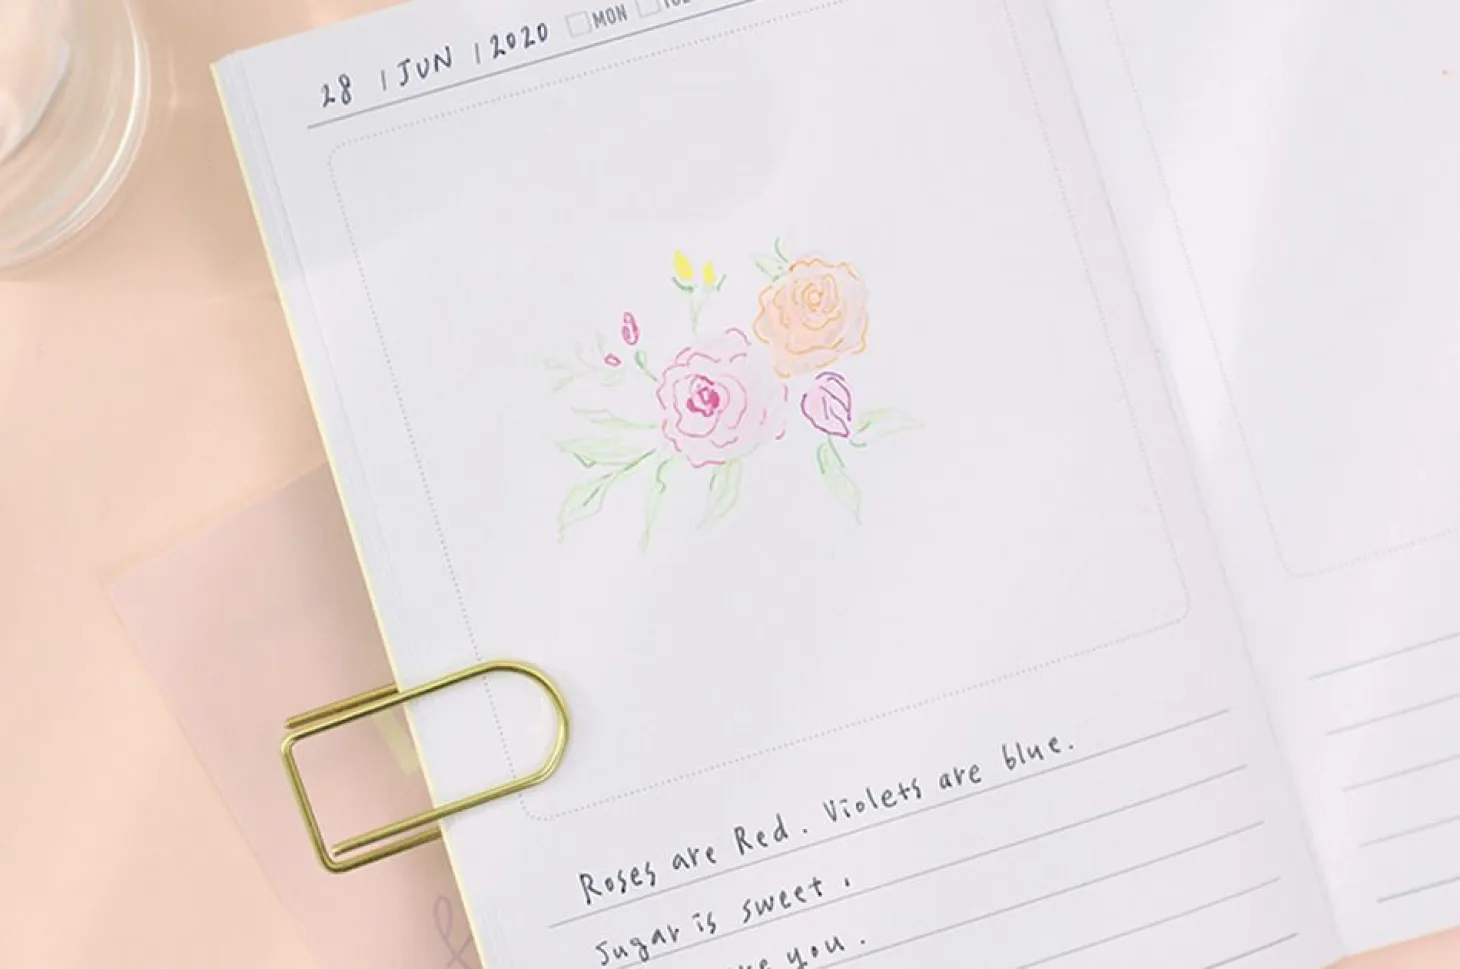 28 | JUN | 2020 MON
Roses are Red. Violets are blue.
Sugar is sweet,
you.